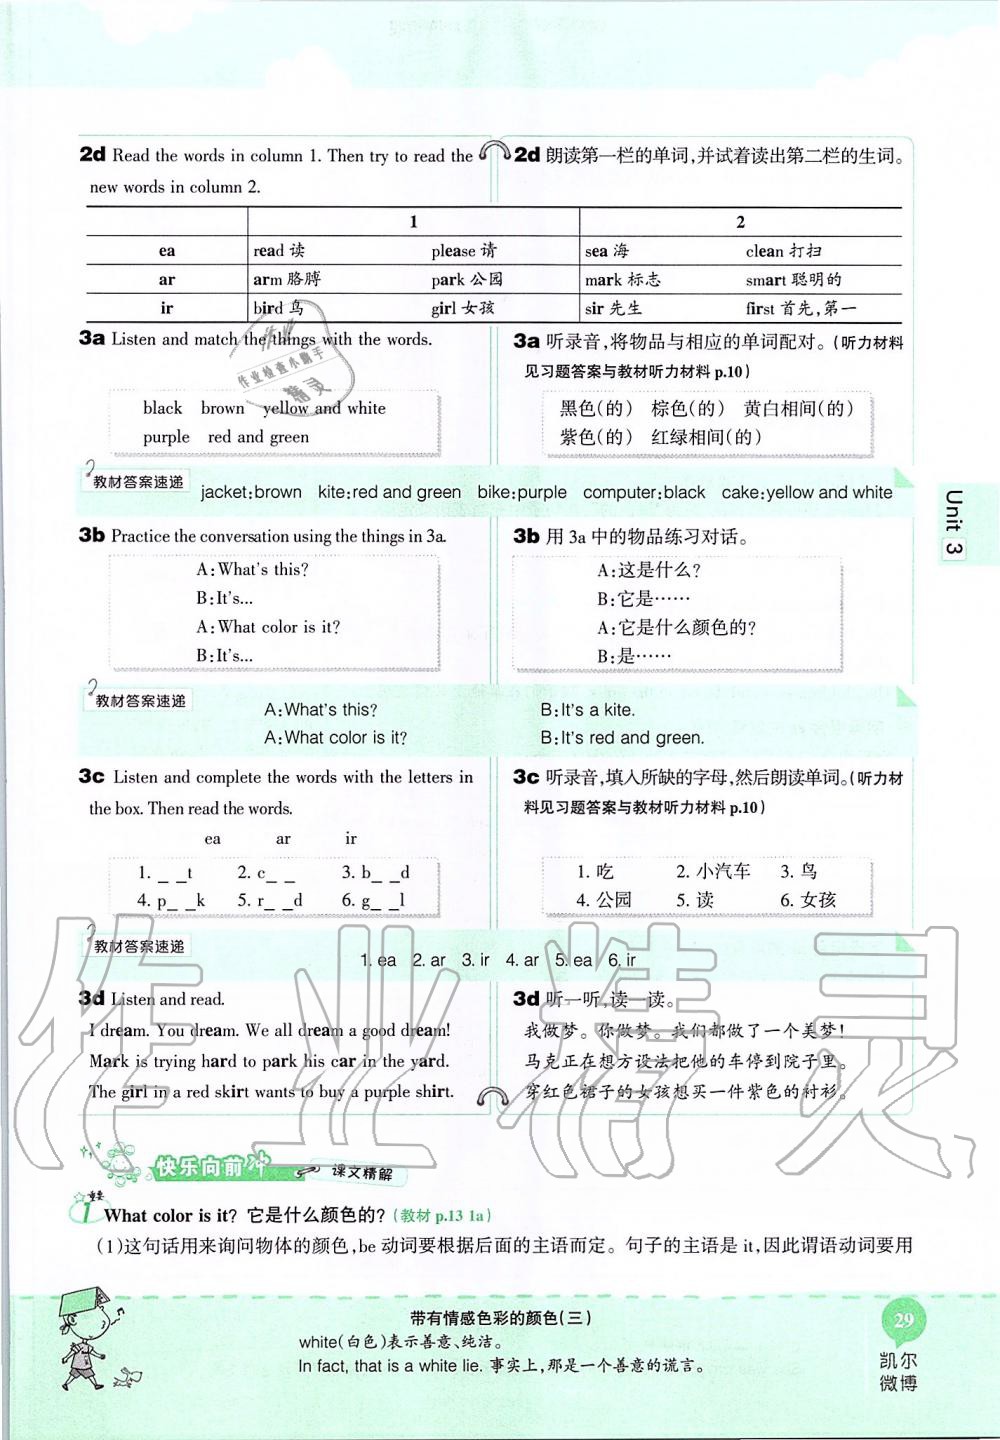 2d Read the words in column 1. Then try to read the
new words in column 2.
2d 朗读第一栏的单词,并试着读出第二栏的生词。
1 2
ea read 读 please 请 sea 海 clean 打扫
ar arm 胳膊 park 公园 mark 标志 smart 聪明的
ir bird 鸟 girl 女孩 sir 先生 first 首先,第一
3a Listen and match the things with the words.
3a 听录音,将物品与相应的单词配对。(听力材料
见习题答案与教材听力材料 p.10)
black brown yellow and white
purple red and green
黑色(的) 棕色(的) 黄白相间(的)
紫色(的) 红绿相间(的)
作业检查小助手
精灵
教材答案速递
jacket:brown kite:red and green bike:purple computer:black cake:yellow and white
3b Practice the conversation using the things in 3a.
A:What's this?
B:It's...
A:What color is it?
B:It's...
3b 用 3a 中的物品练习对话。
A:这是什么?
B:它是……
A:它是什么颜色的?
B:是……
教材答案速递
A:What's this? B:It's a kite.
A:What color is it? B:It's red and green.
3c Listen and complete the words with the letters in
the box. Then read the words.
ea ar ir
1. _ _t 2. c_ _ 3. b_ _d
4. p_ _k 5. r_ _d 6. g_ _l
3c 听录音,填入所缺的字母,然后朗读单词。(听力材
料见习题答案与教材听力材料 p.10)
1. 吃 2. 小汽车 3. 鸟
4. 公园 5. 读 6. 女孩
教材答案速递
1. ea 2. ar 3. ir 4. ar 5. ea 6. ir
3d Listen and read.
I dream. You dream. We all dream a good dream!
Mark is trying hard to park his car in the yard.
The girl in a red skirt wants to buy a purple shirt.
3d 听一听,读一读。
我做梦。你做梦。我们都做了一个美梦!
马克正在想方设法把他的车停到院子里。
穿红色裙子的女孩想买一件紫色的衬衫。
作业精灵
快乐向前冲 课文精解
重要
1 What color is it? 它是什么颜色的?(教材 p.13 1a)
(1)这句话用来询问物体的颜色,be 动词要根据后面的主语而定。句子的主语是 it,因此谓语动词要用
Unit 3
带有情感色彩的颜色(三)
white(白色)表示善意、纯洁。
In fact, that is a white lie. 事实上,那是一个善意的谎言。
29
凯尔
微博